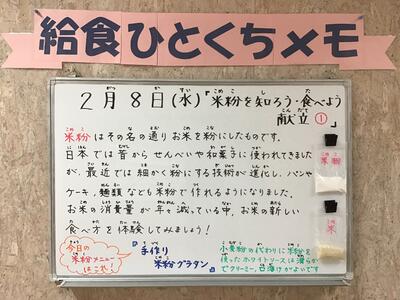 給食ひとくちメモ
2月8日(水)「米粉を知ろう・食べよう
献立①」
米粉はその名の通りお米を粉にしたものです。
日本では昔からせんべいや和菓子に使われてきました
が、最近では細かく粉にする技術が進化し、パンや
ケーキ、麺類なども米粉で作れるようになりました。
お米の消費量が年々減っている中、お米の新しい
食べ方を体験してみましょう!
今日の
米粉メニュー
はこれ!
手作り
米粉グラタン
小麦粉の代わりに米粉を
使ったホワイトソースは滑らか
でクリーミー、口溶けがよいです
米粉
米